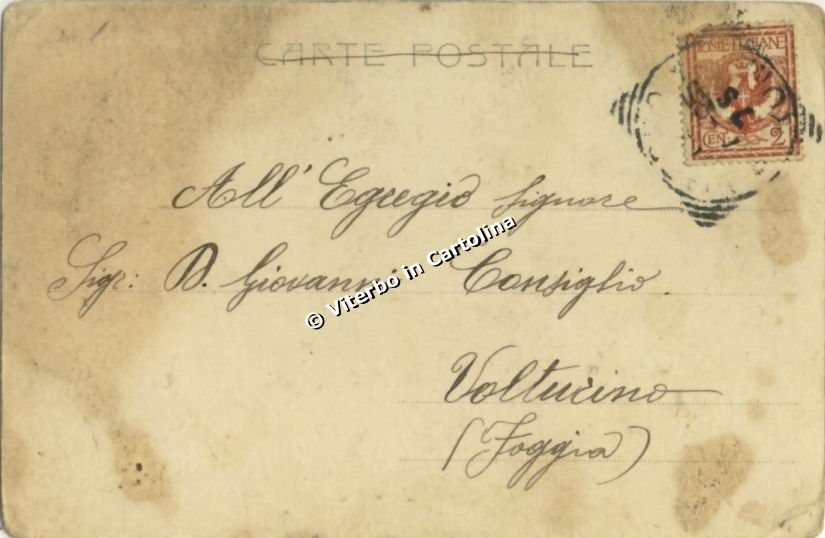 CARTE POSTALE
POSTE ITALIANE
CEN. 2
All' Egregio Signore
Sigr: D. Giovanni Consiglio
© Viterbo in Cartolina
Volturino
(Foggia)